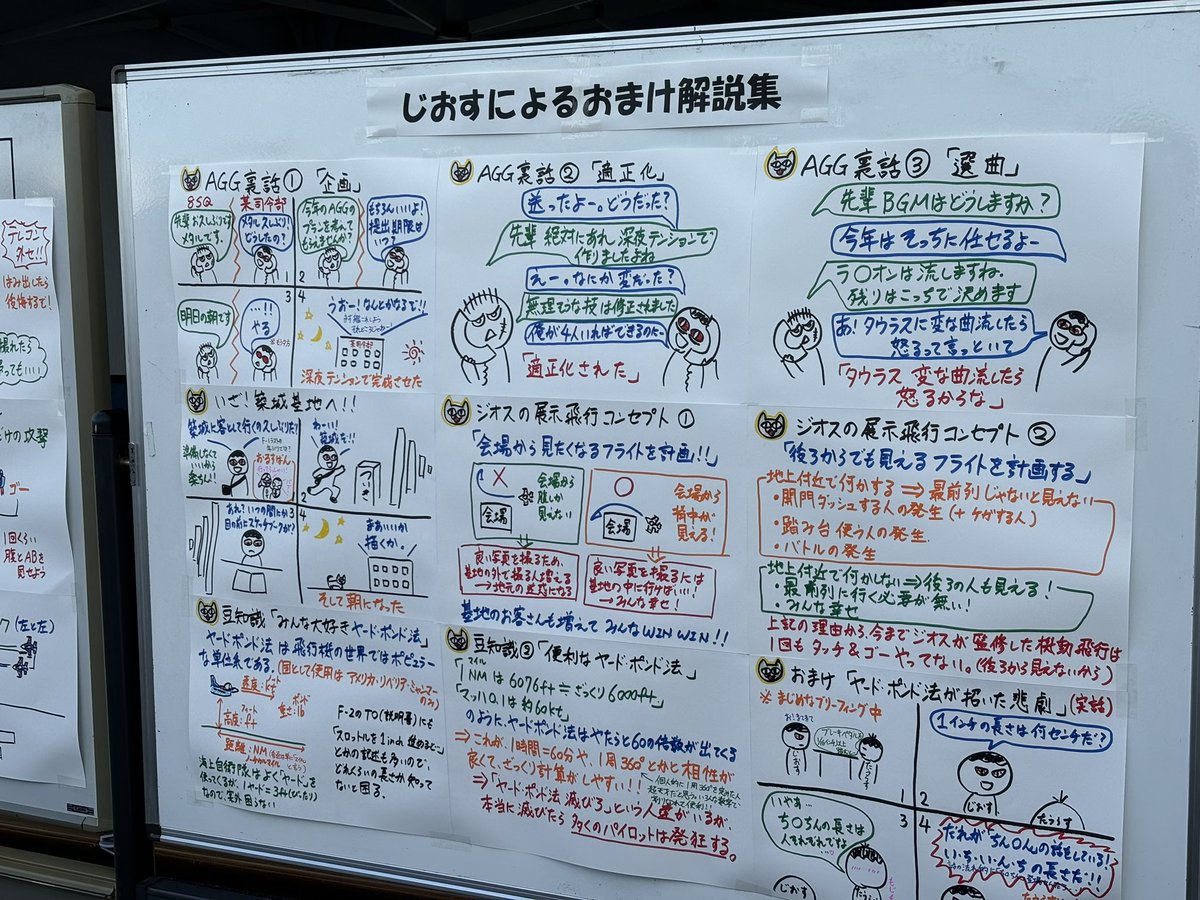 じおすによるおまけ解説集
AGG裏話①「企画」
8SQ
某司令部
先輩おスしぶりです
メタルです。
メタルスしぶり!
どうしたの?
1
今年のAGGの
プランを考えて
もらえませんか?
もちろんいいよ!
提出期限は
いつ?
2
明日の朝です
…!!
やる
3
うおー!なんとかなるで!!
某司令部
4
深夜テンションで完成させた
AGG裏話②「適正化」
送ったよー。どうだった?
先輩 絶対にあれ 深夜テンションで
作りましたよね
えー。なにか変だった?
無理そうな技は修正されました
俺が4人いればできるのに~
「適正化された」
AGG裏話③「選曲」
先輩 BGMはどうしますか?
今年は そっちに任せるよー
ラ○オンは流しますね。
残りはこっちで決めます
あ!タウラスに変な曲流したら
怒るって言っといて
「タウラス 変な曲流したら
怒るからな」
いざ!築城基地へ!!
築城に客として行くのスしぶりだ!
準備しなくて
いいから
楽ちん!
おるすばん
1
わーい!
築城だ!!
2
あれ?いつの間にか
目の前にスケッチブックが!?
3
まあいいか
描くか。
4
そして朝になった
ジオスの展示飛行コンセプト①
「会場から見たくなるフライトを計画!!」
会場
会場から
腹しか
見えない
会場
会場から
背中が
見える!
良い写真を撮るため、
基地の外で撮る人増える
→地元の迷惑になる
良い写真を撮るには
基地の中に行かない!!
→みんな幸せ!
基地のお客さんも増えて みんなWIN WIN!!
ジオスの展示飛行コンセプト②
「後ろからでも見えるフライトを計画する」
地上付近で何かする⇒最前列じゃないと見えない
・開門ダッシュする人の発生(+ケガする人)
・踏み台使う人の発生
・バトルの発生
地上付近で何かしない⇒後ろの人も見える!
・最前列に行く必要が無い!
・みんな幸せ
上記の理由から、今までジオスが監修した機動飛行は
1回もタッチ&ゴーやってない。(後ろから見えないから)
豆知識「みんな大好きヤード・ポンド法」
ヤードポンド法は飛行機の世界ではポピュラー
な単位系である。(国として使用はアメリカ・リベリア・ミャンマー
のみ)
速度:kt
重さ:lb
ポンド
高度:ft
フィート
距離:NM
海上自衛隊はよく「ヤード」を
使ってくるが、1ヤード=3ft(ぴったり)
なので、案外困らない
F-2のTO(説明書)にも
「スロットルを1inch進めると~」
とかの記述も多いので、
どれくらいの長さか知って
ないと困る。
豆知識②「便利なヤード・ポンド法」
「1NMは6076ft≒ざっくり6000ft」
マイル
「マッハ0.1は約60kt」
のように、ヤードポンド法はやたらと60の倍数が出てくる
⇒これが、1時間=60分や、1周360°とかと相性が
良くて、ざっくり計算がしやすい!!
⇒「ヤード・ポンド法 滅びろ」という人達がいるが、
本当に滅びたら 多くのパイロットは発狂する。
おまけ「ヤード・ポンド法が招いた悲劇」(実話)
※まじめなブリーフィング中
じおす
たうらす
1
1インチの長さは何センチだ?
じおす
たうらす
2
いやぁ…
ち○ちんの長さは
人それぞれでな
じおす
3
だれが「ちん○ん」の話をしている!
いち・いんちの長さだ!!
4
テレコン
外せ!!
はみ出したら
後悔するで!
撮れたら
だけの攻撃
ゴー
1回くらい
腹とABを
見せよう
(左と左)